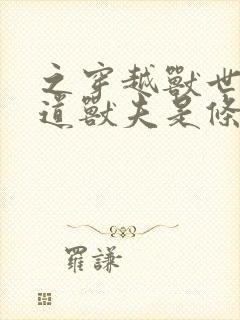 之穿越獸世
道獸夫是條
羅謙